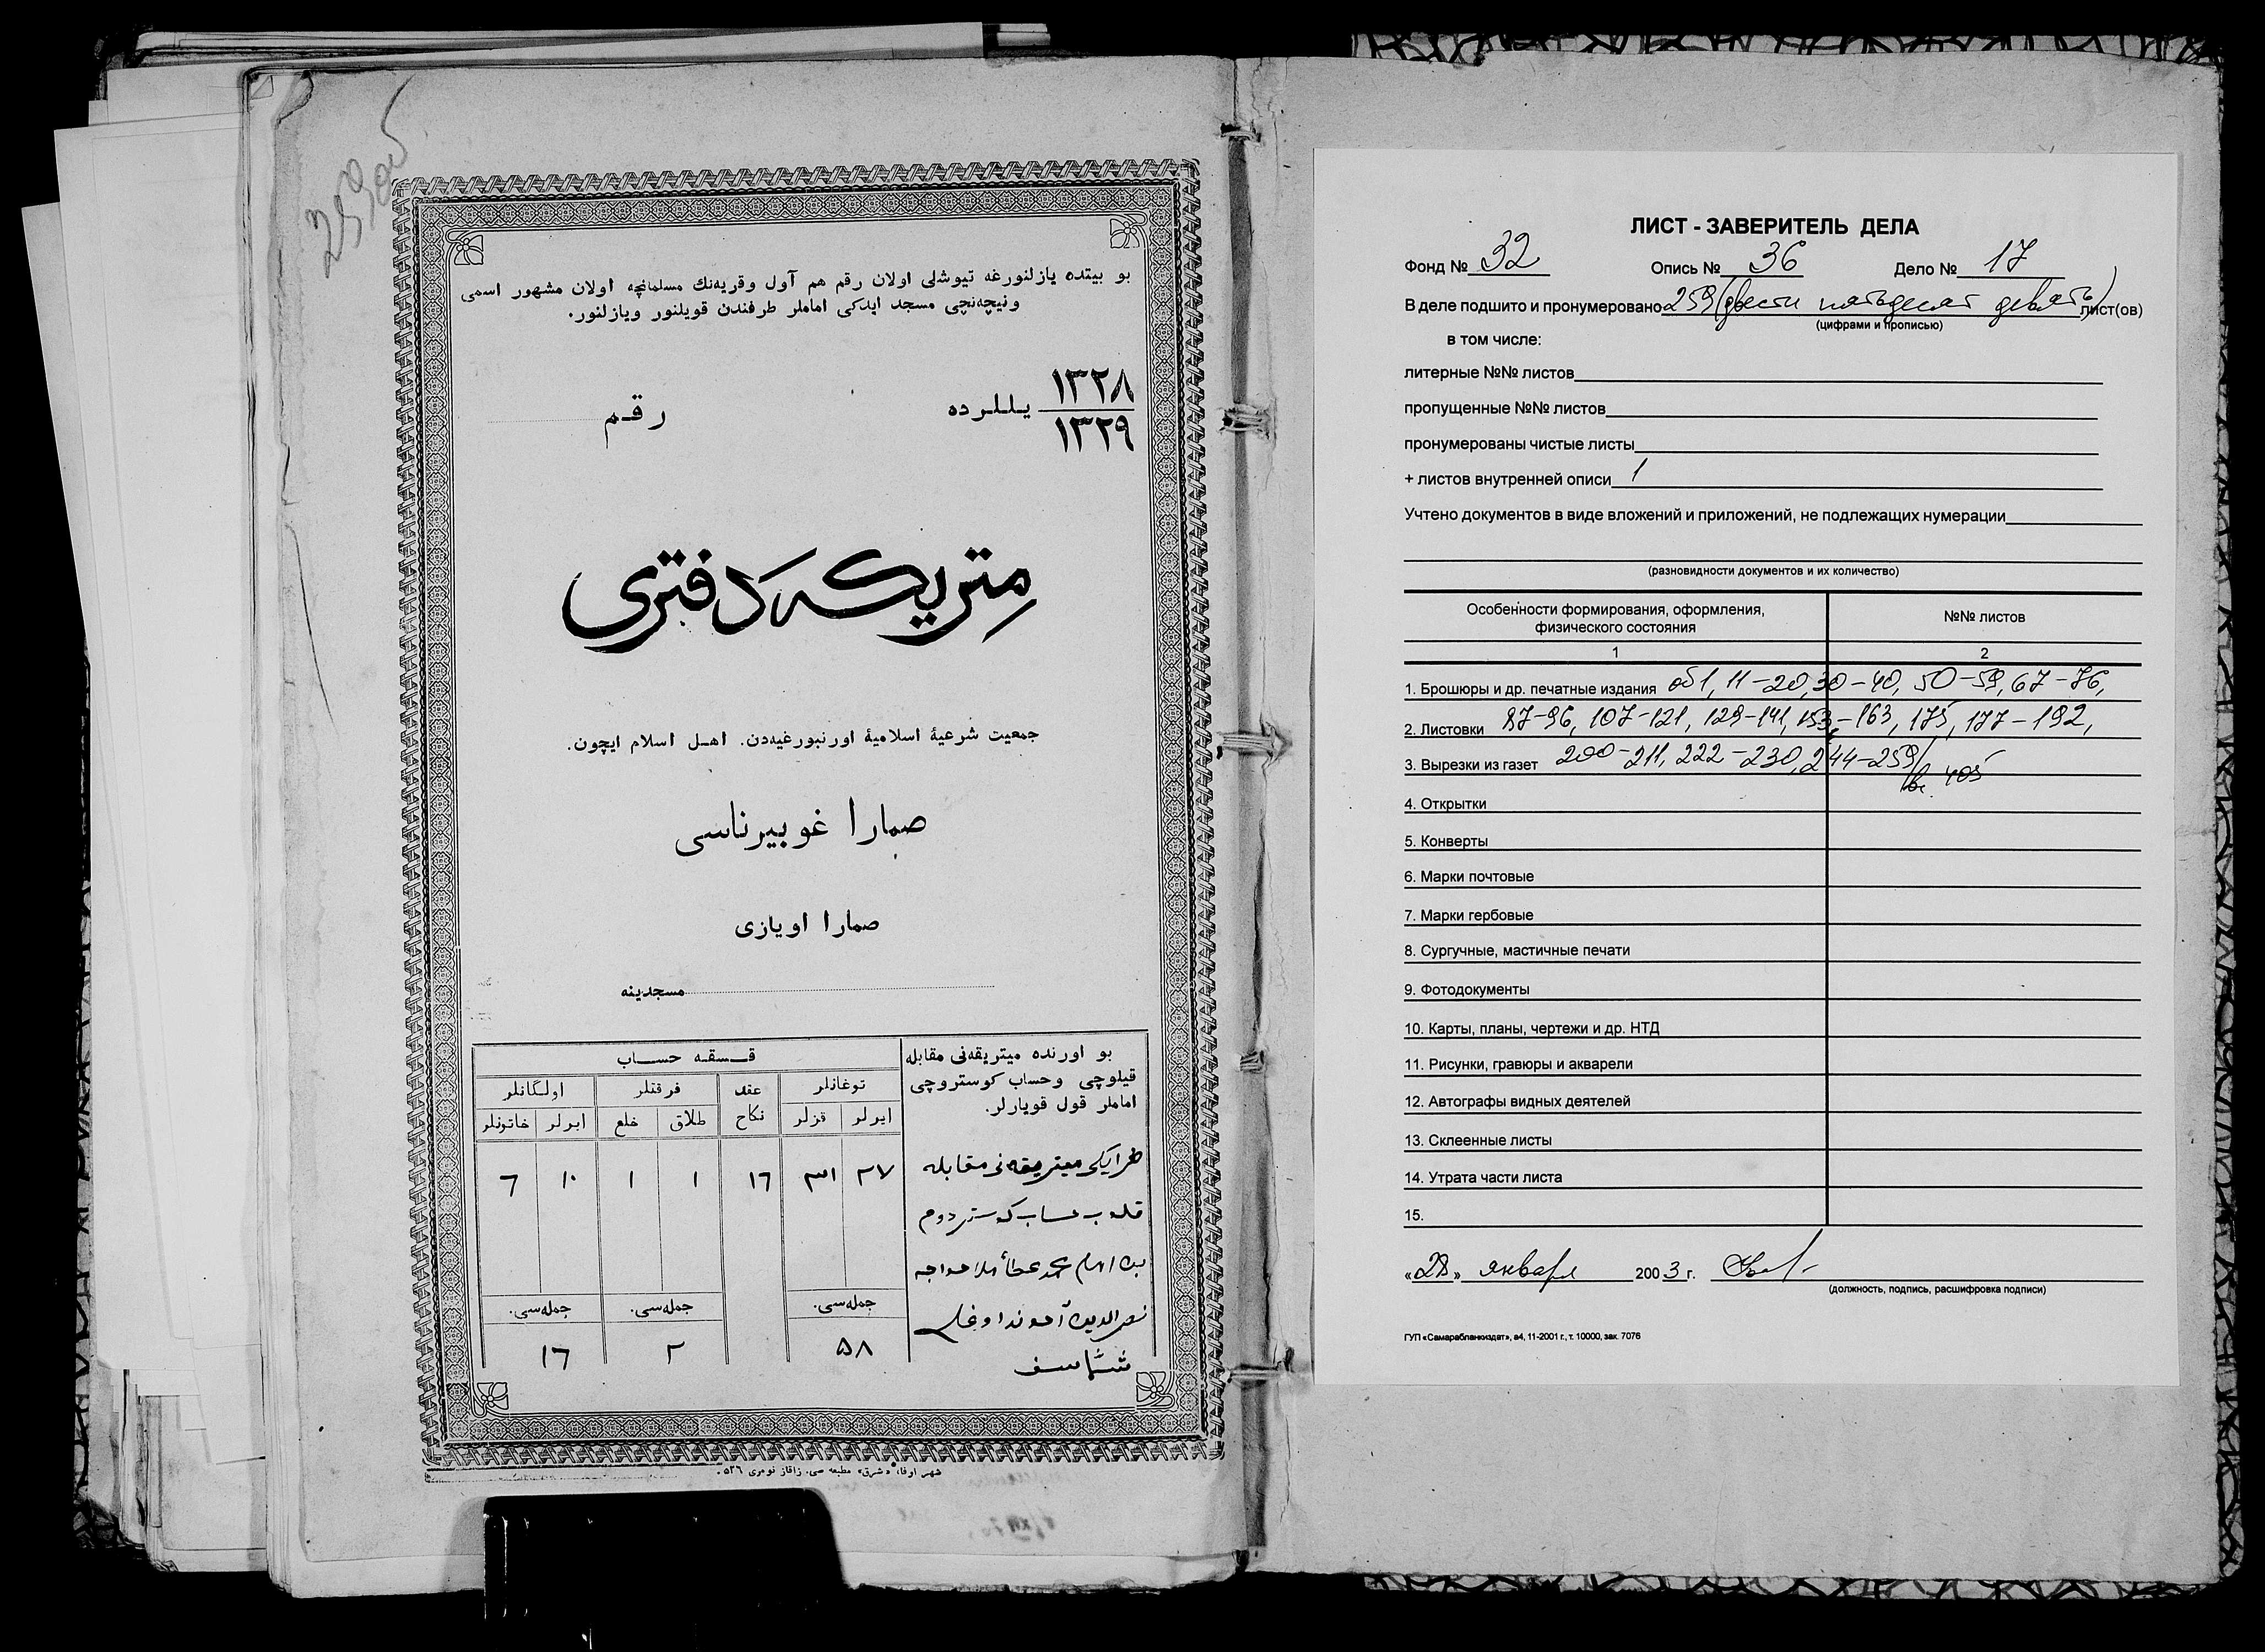 259об
بو بيتده يازلنورغه تيوشلى اولان رقم هم آول وقريه‌نك مسلمانچه اولان مشهور اسمى
ونيچه‌نچى مسجد ايدكى اماملر طرفندن قويلنور ويازلنور.
١٣٢٨
١٣٢٩
يللرده
رقم
متريكه دفترى
جمعيت شرعيۀ اسلاميۀ اورنبورغيه‌دن. اهل اسلام ايچون.
صمارا غوبيرناسى
صمارا اويازى
مسجدينه
بو اورنده ميتريقه‌نى مقابله
قيلوچى وحساب كوستروچى
اماملر قول قويارلر.
قسقه حساب
توغانلر عقد نكاح فرقتلر اولگانلر
ايرلر قزلر طلاق خلع ايرلر خاتونلر
٢٧ ٣١ ١٦ ١ ١ ١٠ ٦
ميتريقه‌نى مقابله
قلوب حساب كوستردوم
امام محمد عطا ملا خواجه
نصرالدين آخوند اوغلى
جمله‌سى. جمله‌سى. جمله‌سى.
٥٨ ٢ ١٦
شهر اوفا، «شرق» مطبعه سى. زاقاز نومرى ٥٣٦.
ЛИСТ - ЗАВЕРИТЕЛЬ ДЕЛА
Фонд № 32 Опись № 36 Дело № 17
В деле подшито и пронумеровано 259 (двести пятьдесят девять) лист(ов)
(цифрами и прописью)
в том числе:
литерные №№ листов
пропущенные №№ листов
пронумерованы чистые листы
+ листов внутренней описи 1
Учтено документов в виде вложений и приложений, не подлежащих нумерации
(разновидности документов и их количество)
Особенности формирования, оформления, физического состояния №№ листов
1 2
1. Брошюры и др. печатные издания об1, 11-20, 30-40, 50-59, 67-76,
2. Листовки 87-96, 107-121, 129-141, 153-163, 175, 177-192,
3. Вырезки из газет 200-211, 222-230, 244-259
4. Открытки
5. Конверты
6. Марки почтовые
7. Марки гербовые
8. Сургучные, мастичные печати
9. Фотодокументы
10. Карты, планы, чертежи и др. НТД
11. Рисунки, гравюры и акварели
12. Автографы видных деятелей
13. Склеенные листы
14. Утрата части листа
15.
«28» января 2003 г.
(должность, подпись, расшифровка подписи)
ГУП «Самарабланкиздат», а4, 11-2001 г., т. 10000, зак. 7076